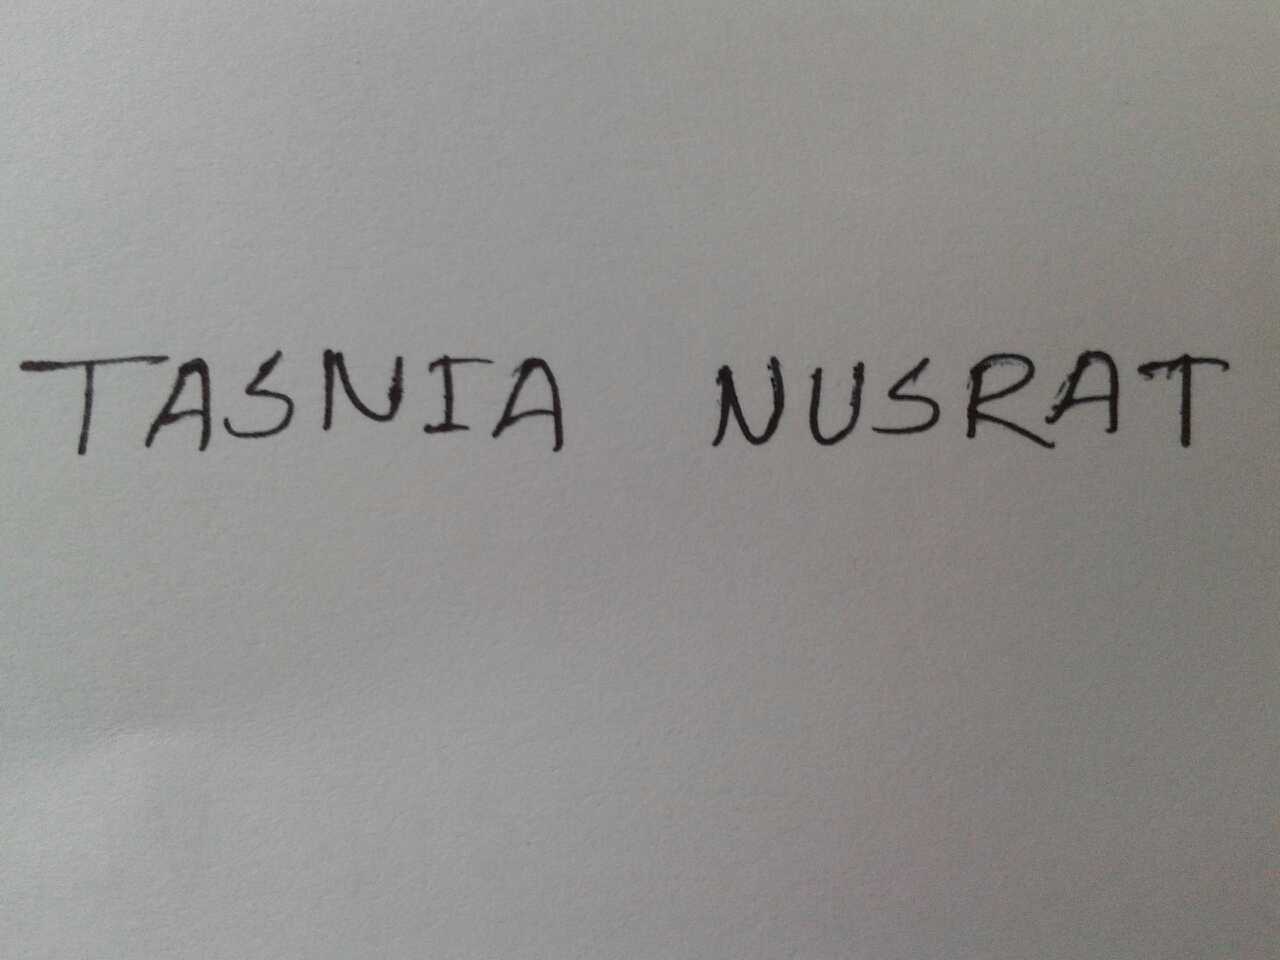 TASNIA NUSRAT